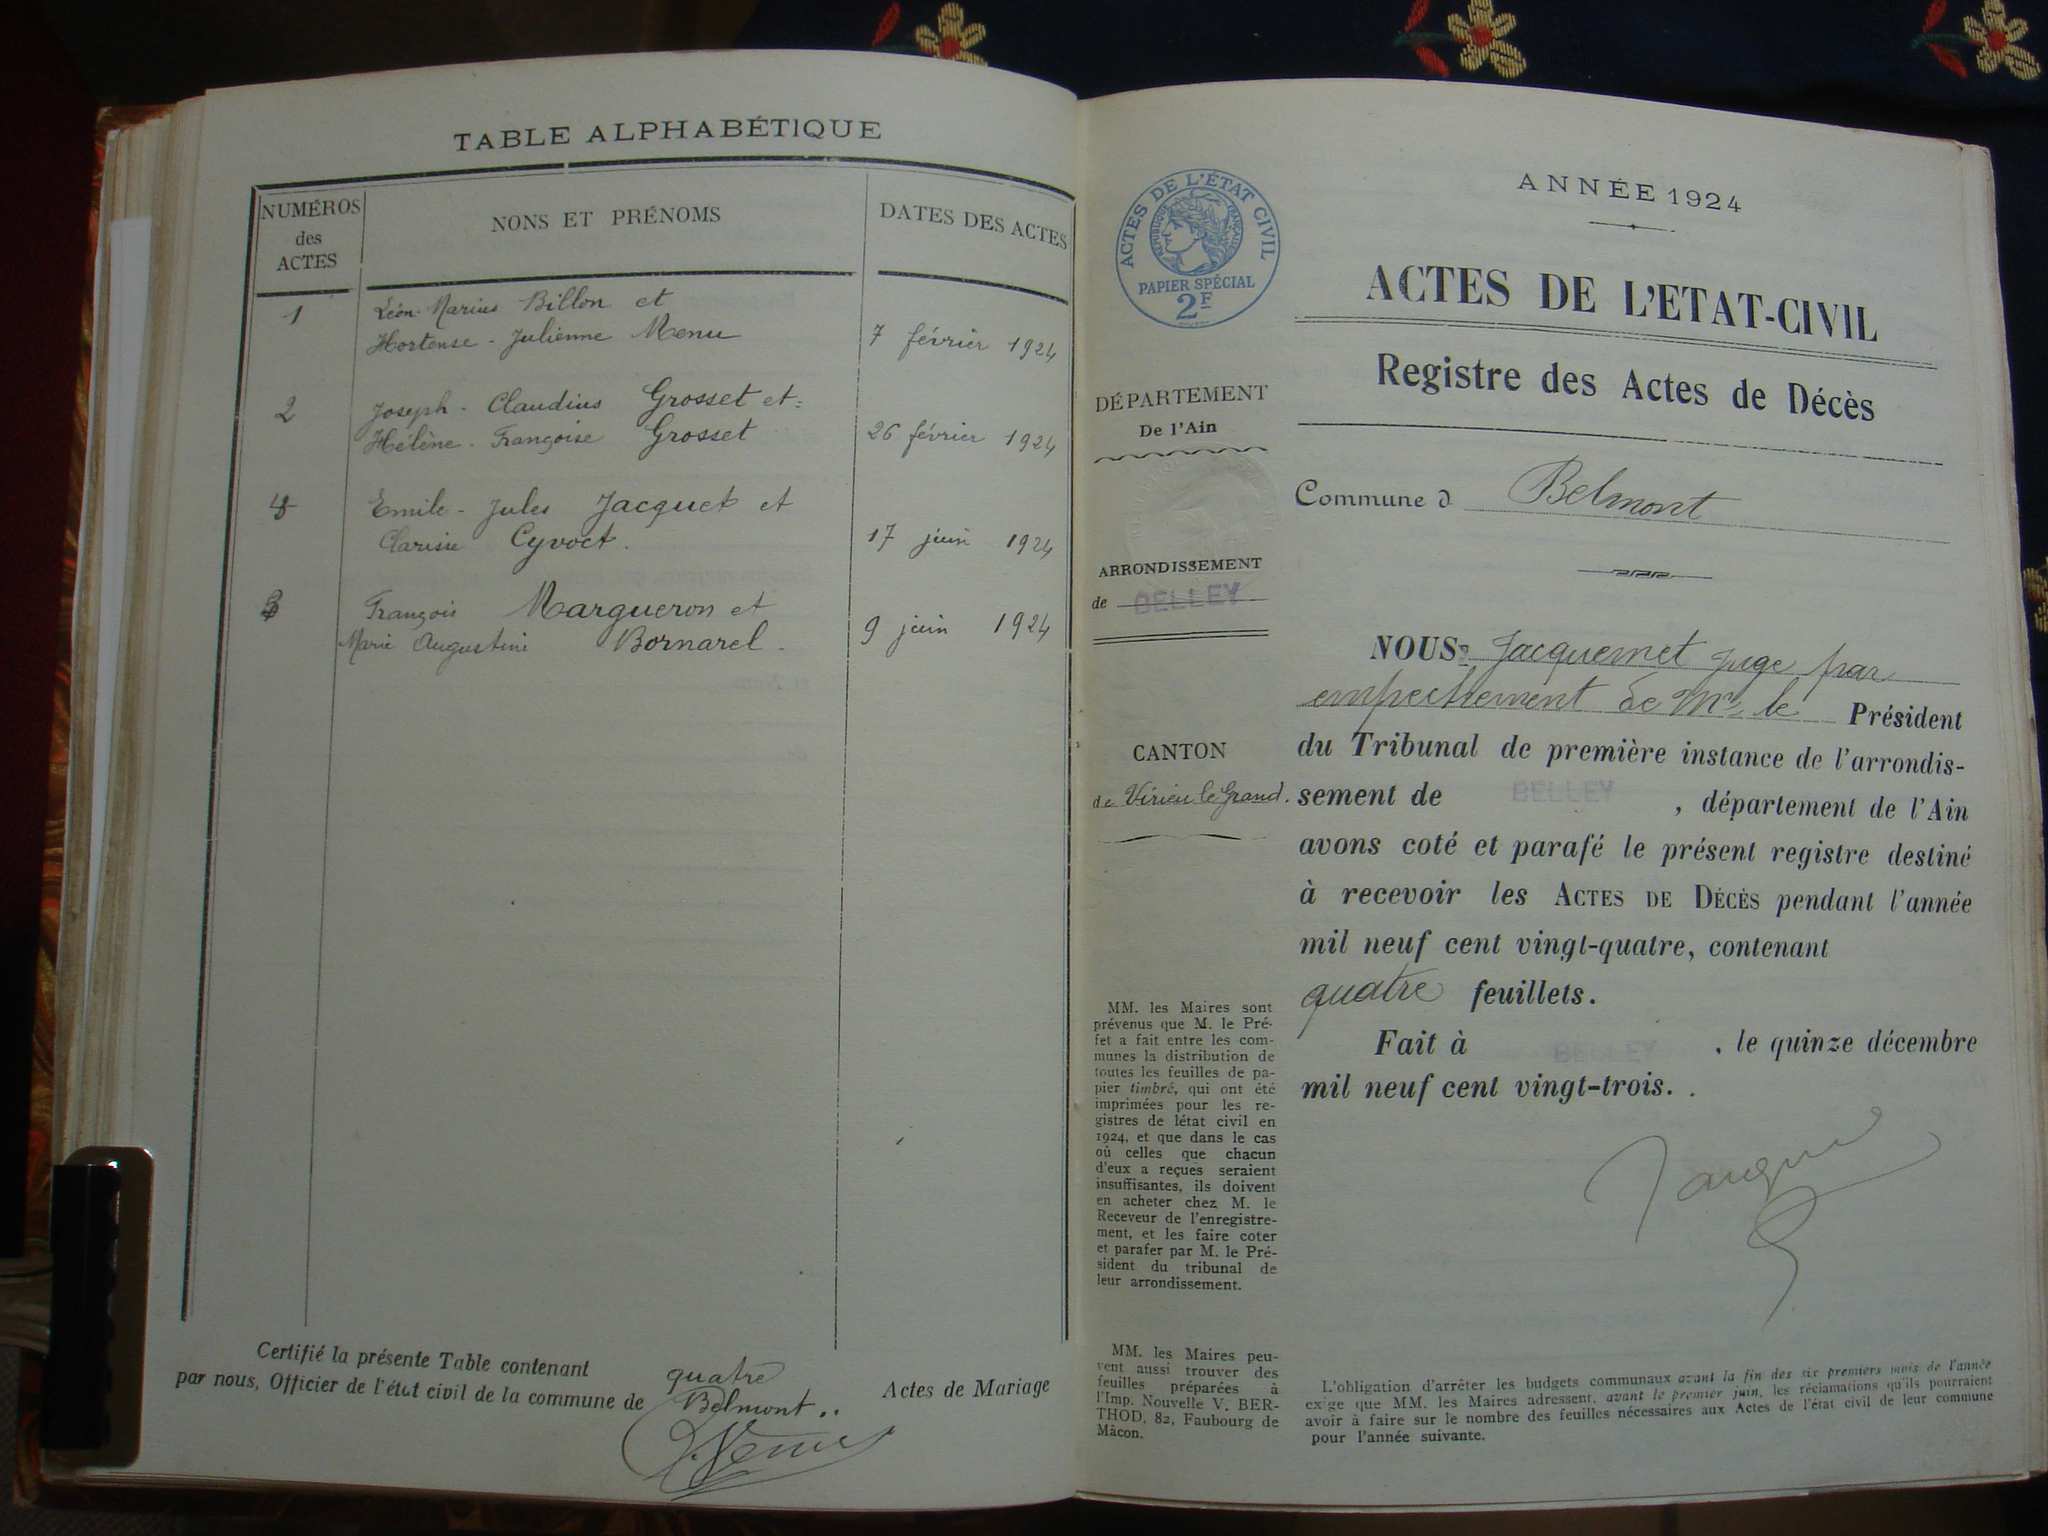 TABLE ALPHABÉTIQUE
NUMÉROS
des
ACTES
NONS ET PRÉNOMS
DATES DES ACTES
1
Léon-Marius Billon et
Hortense-Julienne Menu
7 février 1924
2
Joseph-Claudius Grosset et
Hélène-Françoise Grosset
26 février 1924
4
Emile-Jules Jacquet et
Clarisse Cyvoct.
17 juin 1924
3
François Margueron et
Marie Augustine Bornarel.
9 juin 1924
Certifié la présente Table contenant quatre Actes de Mariage
par nous, Officier de l'état civil de la commune de Belmont..
ACTES DE L'ÉTAT CIVIL
RÉPUBLIQUE FRANÇAISE
PAPIER SPÉCIAL
2F
DÉPARTEMENT
De l'Ain
ARRONDISSEMENT
de BELLEY
CANTON
de Virieu le Grand.
MM. les Maires sont
prévenus que M. le Pré-
fet a fait entre les com-
munes la distribution de
toutes les feuilles de pa-
pier timbré, qui ont été
imprimées pour les re-
gistres de létat civil en
1924, et que dans le cas
où celles que chacun
d'eux a reçues seraient
insuffisantes, ils doivent
en acheter chez M. le
Receveur de l'enregistre-
ment, et les faire coter
et parafer par M. le Pré-
sident du tribunal de
leur arrondissement.
MM. les Maires peu-
vent aussi trouver des
feuilles préparées à
l'Imp. Nouvelle V. BER-
THOD, 82, Faubourg de
Mâcon.
ANNÉE 1924
ACTES DE L'ETAT-CIVIL
Registre des Actes de Décès
Commune d Belmont
NOUS, Jacquemet Juge par
empechement de Mr le Président
du Tribunal de première instance de l'arrondis-
sement de BELLEY, département de l'Ain
avons coté et parafé le présent registre destiné
à recevoir les ACTES DE DÉCÈS pendant l'année
mil neuf cent vingt-quatre, contenant
quatre feuillets.
Fait à BELLEY, le quinze décembre
mil neuf cent vingt-trois. .
L'obligation d'arrêter les budgets communaux avant la fin des six premiers mois de l'année
exige que MM. les Maires adressent, avant le premier juin, les réclamations qu'ils pourraient
avoir à faire sur le nombre des feuilles nécessaires aux Actes de l'état civil de leur commune
pour l'année suivante.